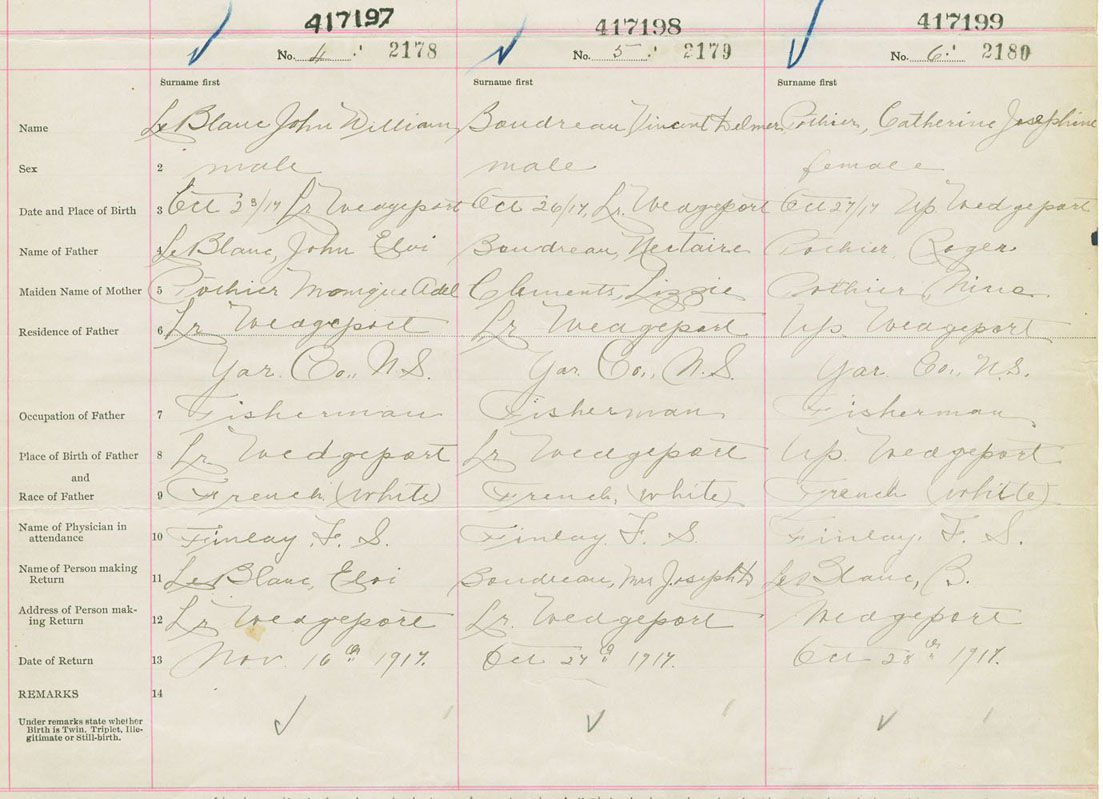 417197 417198 417199
No. 4 2178 No. 5 2179 No. 6 2180
Surname first Surname first Surname first
Name LeBlanc John William Boudreau Vincent Delmer Pothier, Catherine Josephine
Sex 2 male male female
Date and Place of Birth 3 Oct 23/17 Lr Wedgeport Oct 26/17, Lr. Wedgeport Oct 27/17 Up Wedgeport
Name of Father 4 LeBlanc, John Eloi Boudreau, Nectaire Pothier, Roger
Maiden Name of Mother 5 Pothier Monique Adel Clements, Lizzie Pothier, Nina
Residence of Father 6 Lr Wedgeport Lr Wedgeport Up. Wedgeport
Yar. Co., N.S. Yar. Co., N.S. Yar. Co., N.S.
Occupation of Father 7 Fisherman Fisherman Fisherman
Place of Birth of Father 8 Lr Wedgeport Lr Wedgeport Up. Wedgeport
and
Race of Father 9 French (white) French, (white) French (white)
Name of Physician in
attendance 10 Finlay F. S. Finlay F. S. Finlay, F. S.
Name of Person making
Return 11 LeBlanc, Eloi Boudreau, Mrs Joseph LeBlanc, B.
Address of Person mak-
ing Return 12 Lr Wedgeport Lr. Wedgeport Wedgeport
Date of Return 13 Nov. 16th 1917. Oct 27th 1917. Oct 28th 1917.
REMARKS 14
Under remarks state whether
Birth is Twin, Triplet, Ille-
gitimate or Still-birth.